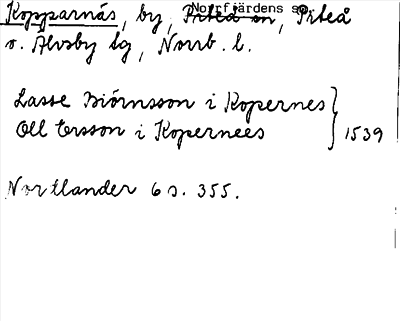 Kopparnäs, by, Norrfjärdens sn, Piteå
o. Älvsby tg, Norrb. l.
Lasse Biörnsson i Kopernes
Oll Ersson i Kopernees } 1539
Nordlander 6 s. 355.